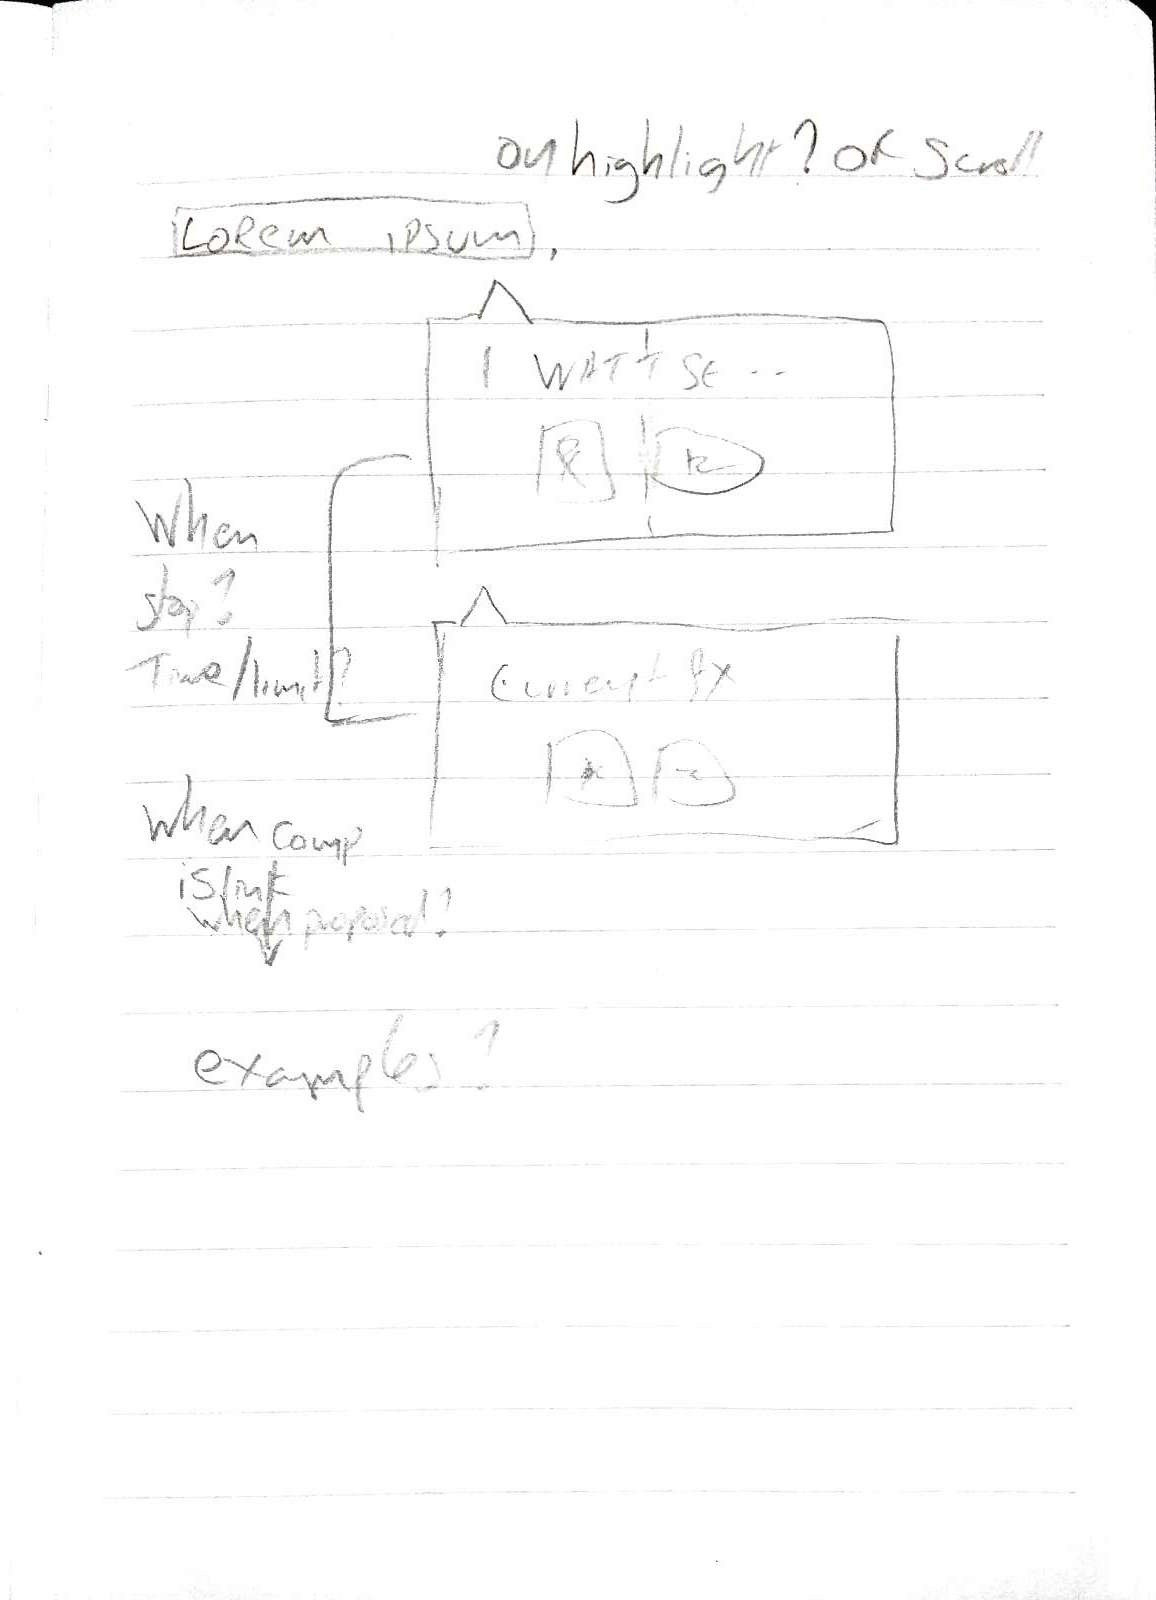 on highlight? OR Scroll
Lorem ipsum,
I
When
stop?
Time/limit?
Current
When comp
is
when proposal?
examples?